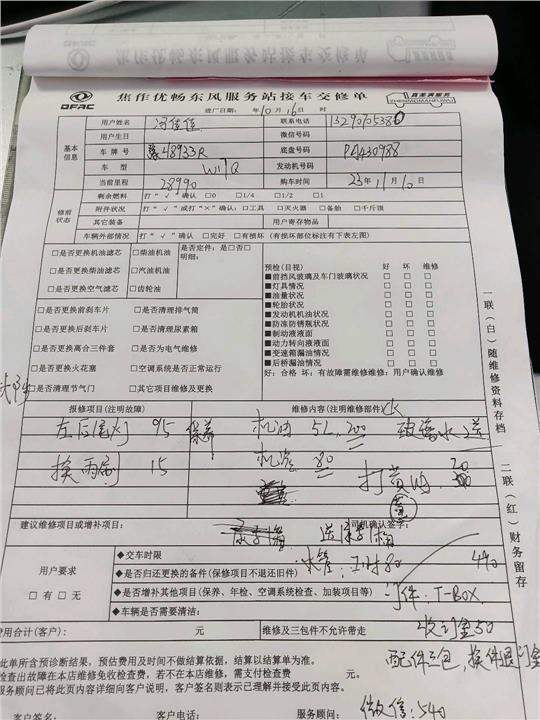 DFAC
焦作优畅东风服务站接车交修单
真芙满服务
ZHENMEIMANFUWU
进厂日期: 年10月16日 时
基本信息
用户姓名
联系电话
用户生日 微信号码
车牌号 豫48933R 底盘号码 PA430988
车型 W17Q 发动机号码
当前里程 28990 购车时间 23年11月10日
修前状态
剩余燃料 打“√”确认 □0 □1/4 □1/2 □1
附件状况 打“√”或打“×”确认:□工具 □灭火器 □备胎 □千斤顶
其它装备 用户寄存物品
车辆外部情况 打“√”确认 □完好 □有损坏(有损坏部位标注有下表左图)
□是否更换机油滤芯 □柴油机油 是否定件:是□否□
明细:
□是否更换柴油滤芯 □汽油机油
□是否更换空气滤芯 □齿轮油
预检(目视) 好 坏 维修
■前挡风玻璃及车门玻璃状况 □ □ □
■灯具情况 □ □ □
■油量状况 □ □ □
■轮胎状况 □ □ □
■发动机机油状况 □ □ □
■防冻防锈瓶状况 □ □ □
■制动液液面 □ □ □
■动力转向液液面 □ □ □
■变速箱漏油情况 □ □ □
■后桥漏油情况 □ □ □
好:合格 坏:有故障需维修维修:用户确认维修
□是否更换前刹车片 □是否清理排气筒
□是否更换后刹车片 □是否清理尿素箱
□是否更换离合三件套 □是否为电气维修
□是否更换火花塞 □空调系统是否正常运行
□是否清理节气门 □其它项目维修及更换
一联(白)随维修资料存档
二联(红)财务留存
报修项目(注明故障) 维修内容(注明维修部件)
左后尾灯 95 保养 机油 5L 200 玻璃水 送
换雨刮 15 机滤 80 打黄油 20
建议维修项目或增补项目: 司机确认签字:
送
水管: 工时80 490
用户要求
□有 □无
◆交车时限
◆是否归还更换的备件(保修项目不退还旧件)
◆是否增补其他项目(保养、年检、空调系统检查、加装项目等)
件: T-BOX
◆车辆是否需要清洁:
收订金50
费用合计(客户): 元 维修及三包件不允许带走
配件三包,换件退订金
此单所含预诊断结果,预估费用及时间不做结算依据,结算以结算单为准。
检查出故障在本店维修免收检查费,若不在本店维修,需支付检查费 元。
服务顾问已将此页内容详细向客户说明,客户签名则表示已理解并接受此页内容。
客户签名: 客户电话: 服务顾问:
微信:540